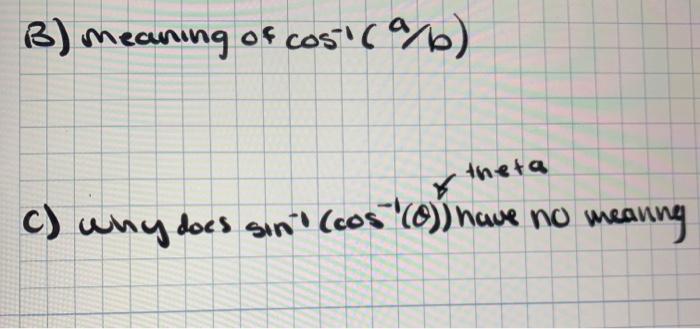 B) meaning of cos⁻¹(a/b)
theta
C) why does sin⁻¹(cos⁻¹(θ)) have no meaning